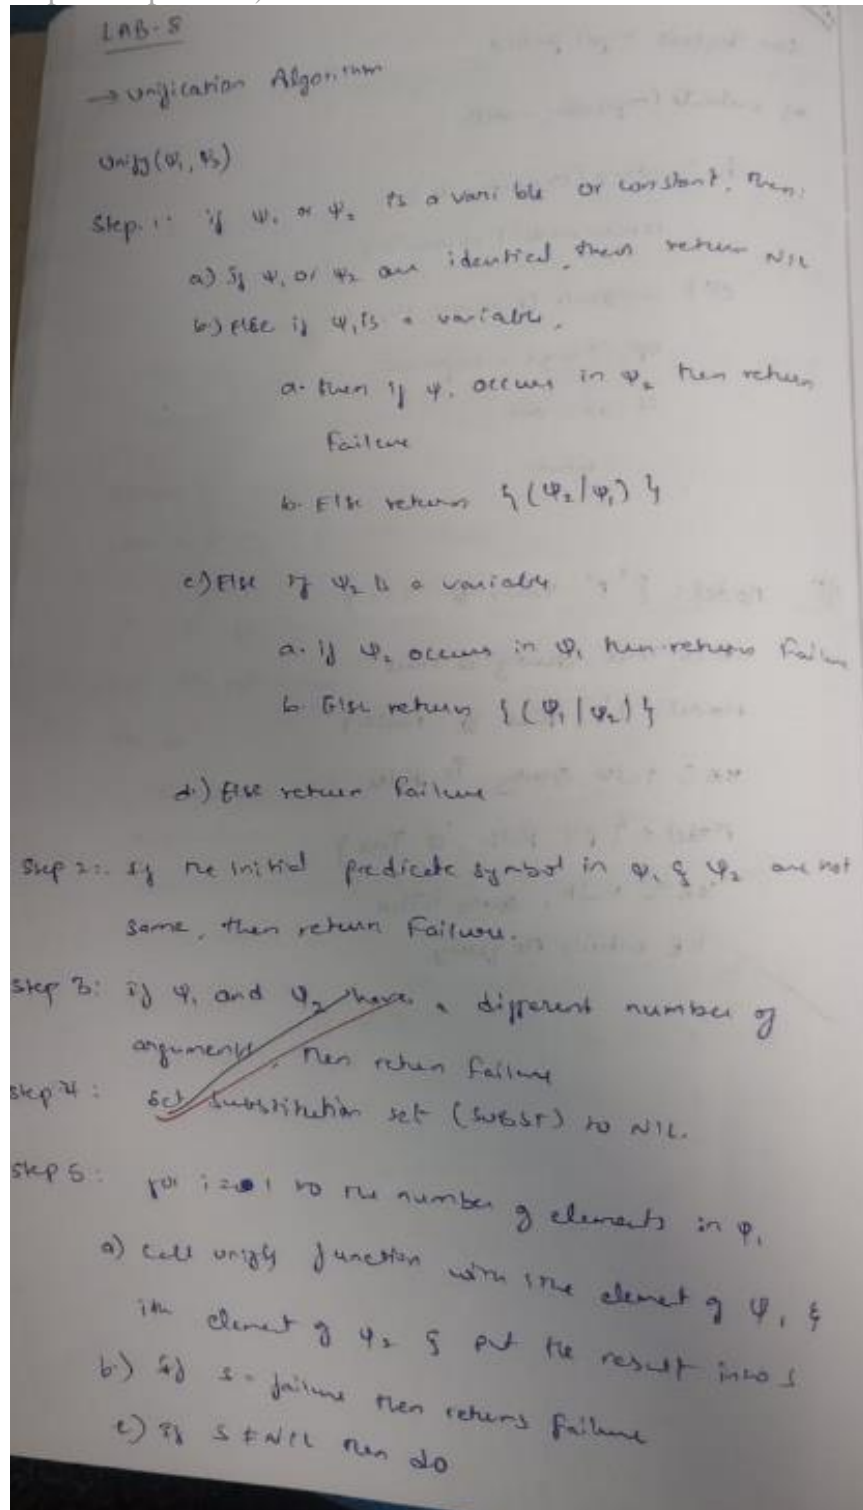 LAB-8
→ Unification Algorithm
Unify(Ψ1, Ψ2)
Step.1: if Ψ1 or Ψ2 is a varible or constant, then:
a) If Ψ1 or Ψ2 are identical, then return NIL
b) Else if Ψ1 is a variable,
a. then if Ψ1 occurs in Ψ2 then return
Failure
b. Else return {(Ψ2/Ψ1)}
c) Else if Ψ2 is a variable
a. if Ψ2 occurs in Ψ1 then return Failure
b. Else return {(Ψ1/Ψ2)}
d.) Else return Failure
Step 2:. If the initial predicate symbol in Ψ1 & Ψ2 are not
same, then return Failure.
Step 3: if Ψ1 and Ψ2 have a different number of
arguments, then return Failure
Step 4: Set Substitution set (SUBST) to NIL.
Step 5: for i=1 to the number of elements in Ψ1
a) Call unify function with ith element of Ψ1 &
ith element of Ψ2 & put the result into S
b.) If S = failure then returns Failure
c) if S ≠ NIL then do